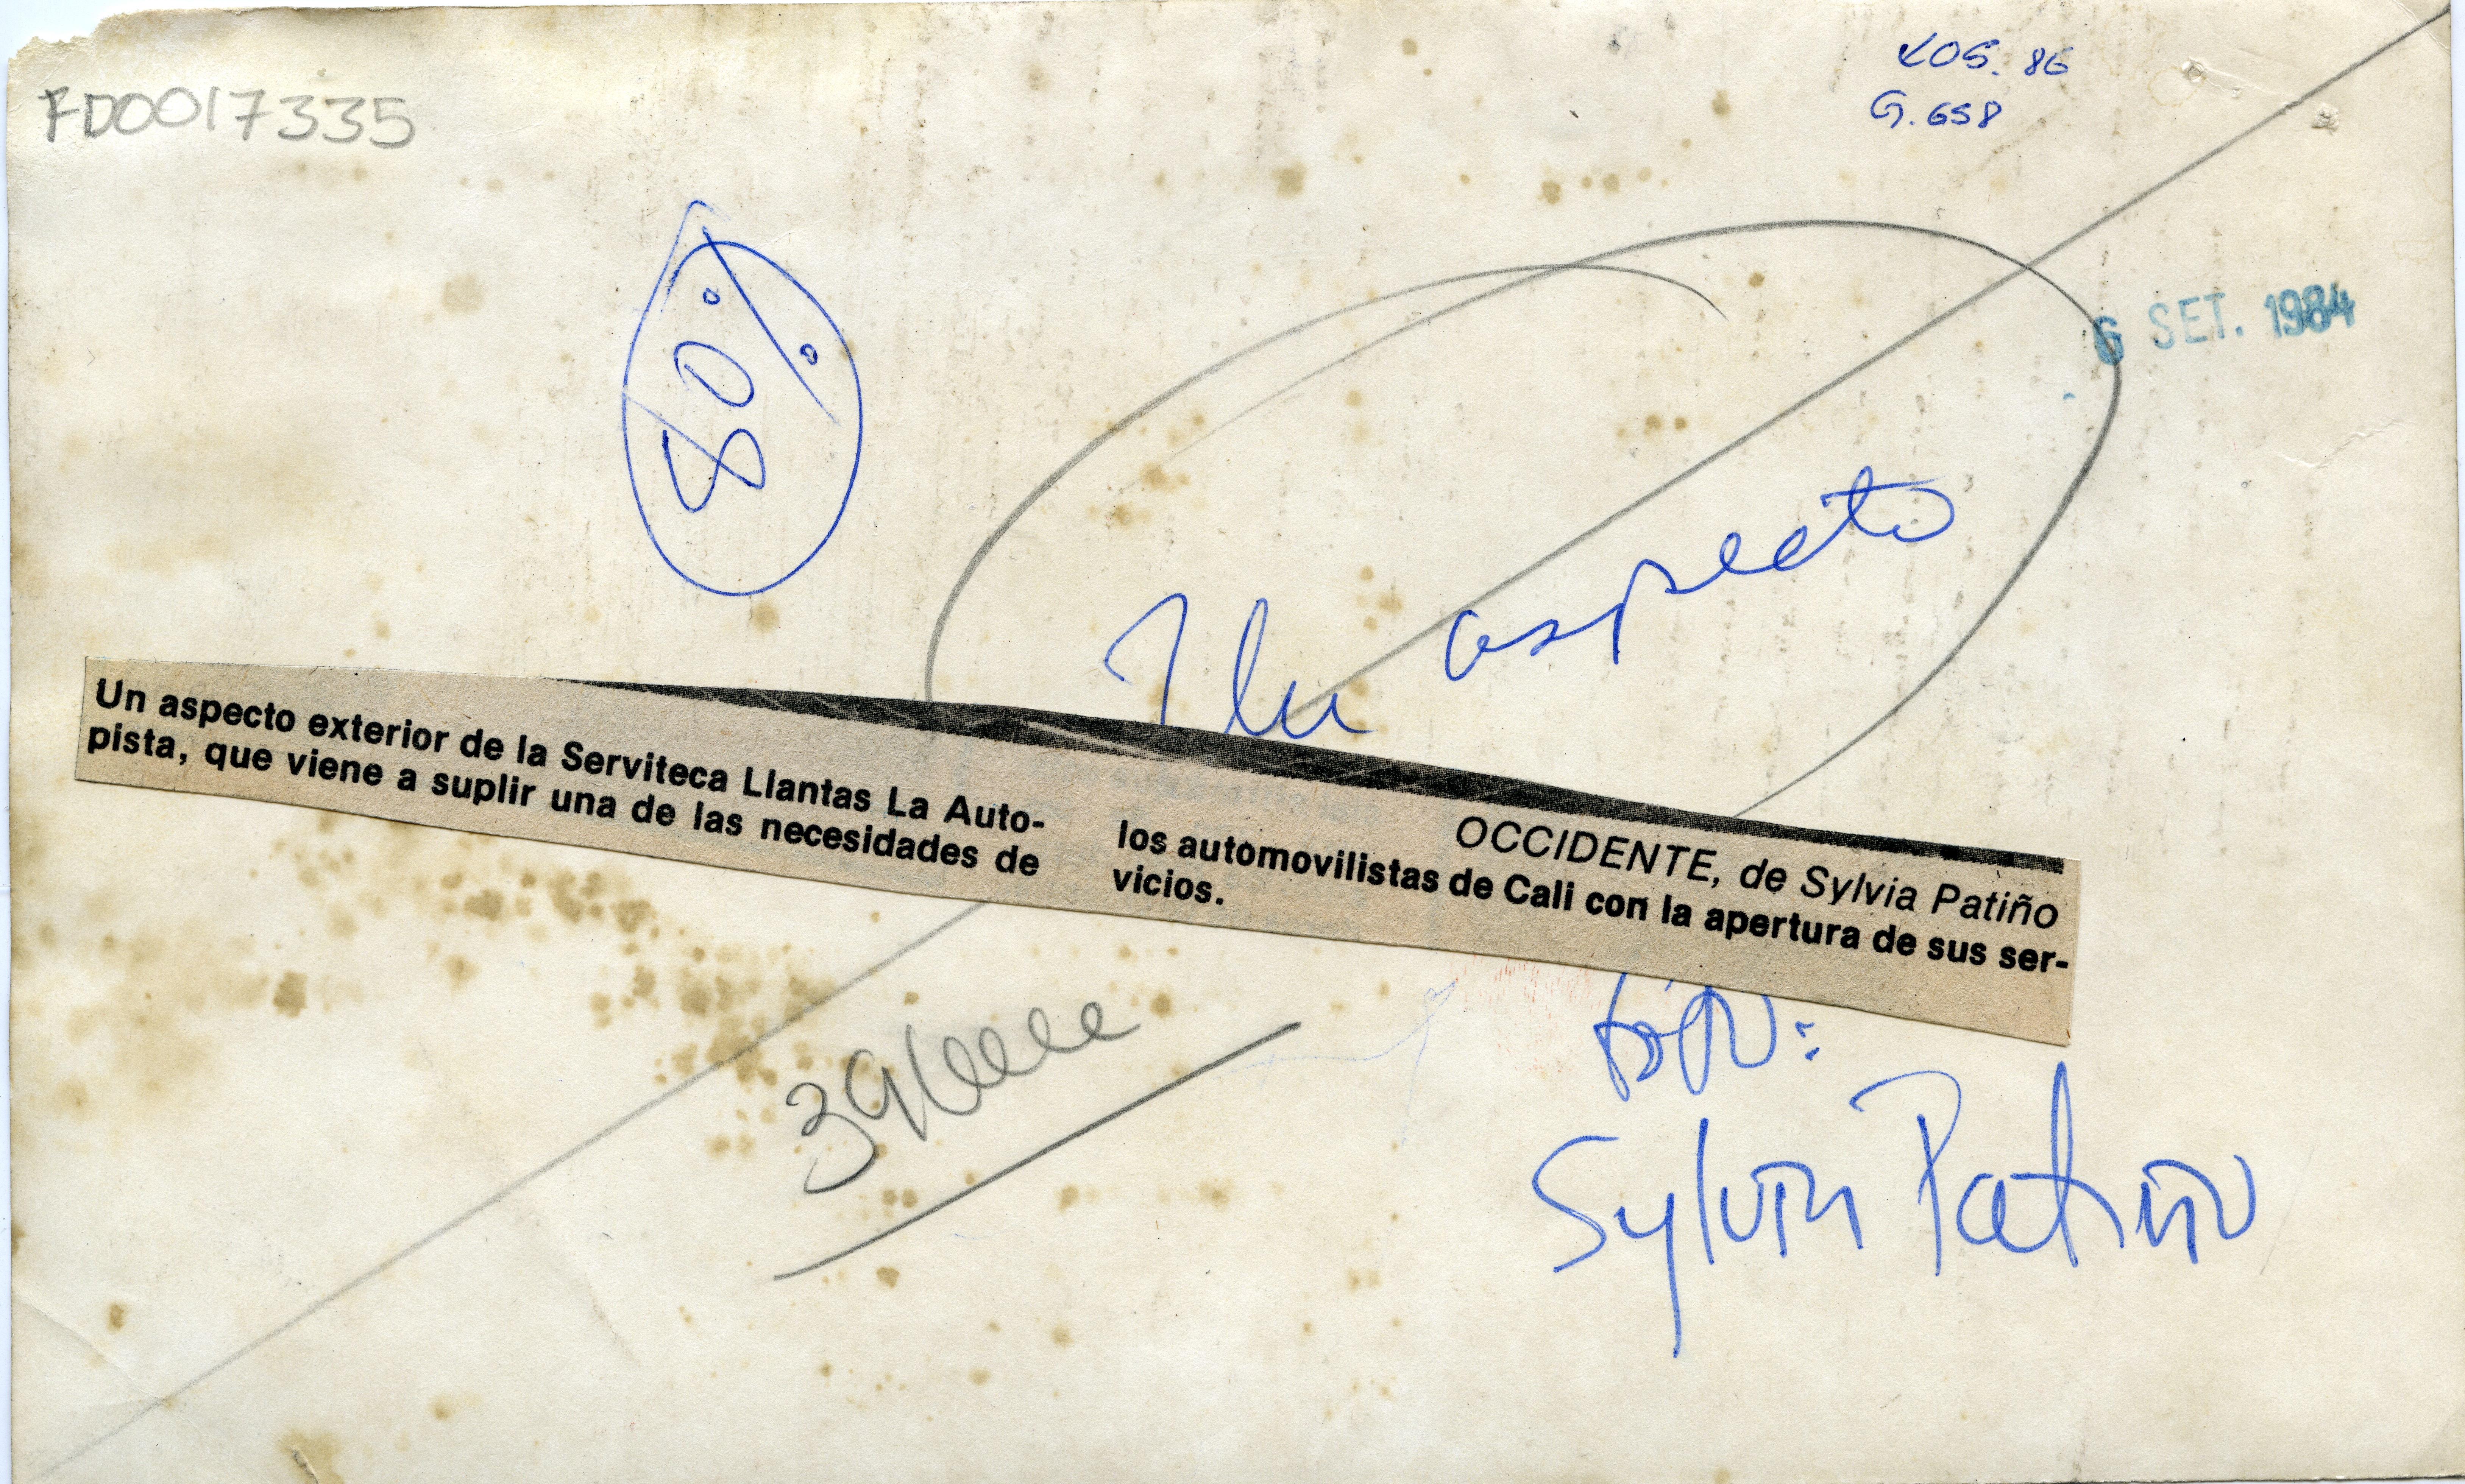 FD0017335
G. 658
6 SET. 1984
80%
Un aspecto
Un aspecto exterior de la Serviteca Llantas La Auto-
pista, que viene a suplir una de las necesidades de
OCCIDENTE, de Sylvia Patiño
los automovilistas de Cali con la apertura de sus ser-
vicios.
foto:
Sylvia Patiño